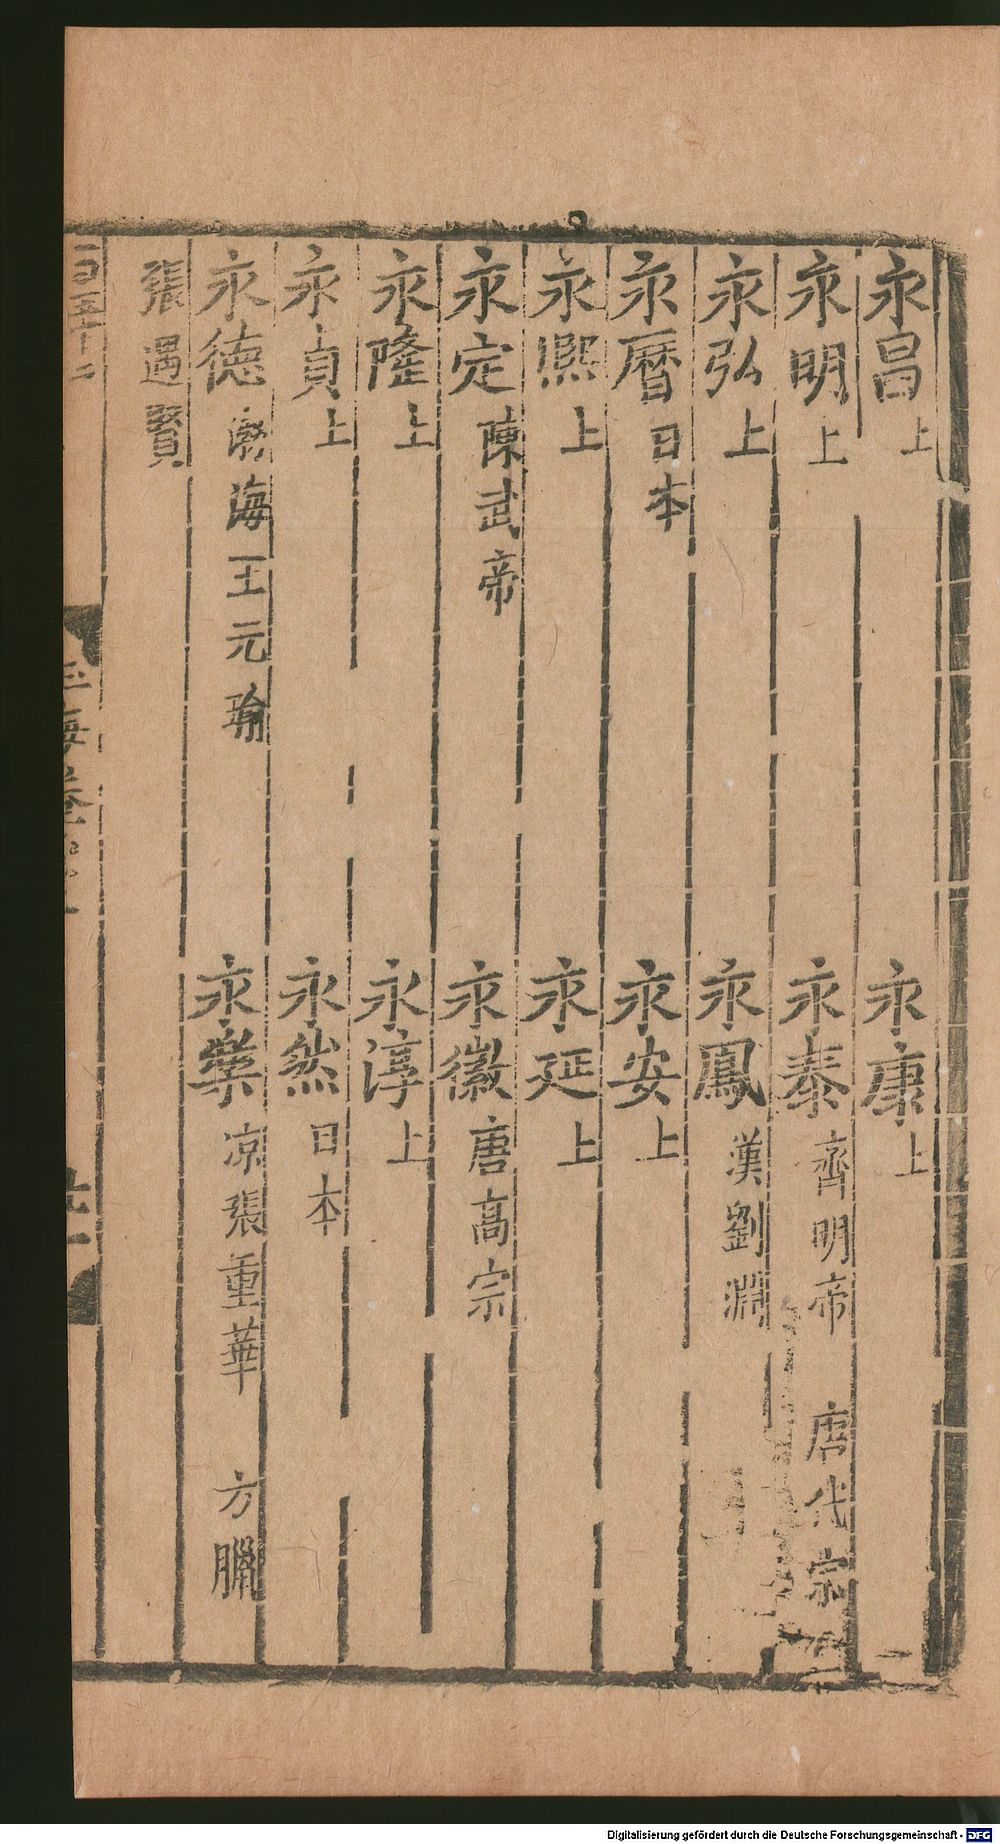 永昌上
永康上
永明上
永泰齊明帝 唐代宗
永弘上
永鳳漢劉淵
永曆日本
永安上
永熙上
永延上
永定陳武帝
永徽唐高宗
永隆上
永淳上
永貞上
永然日本
永德渤海王元瑜
永樂凉張重華 方臘
張遇賢
Digitalisierung gefördert durch die Deutsche Forschungsgemeinschaft - DFG